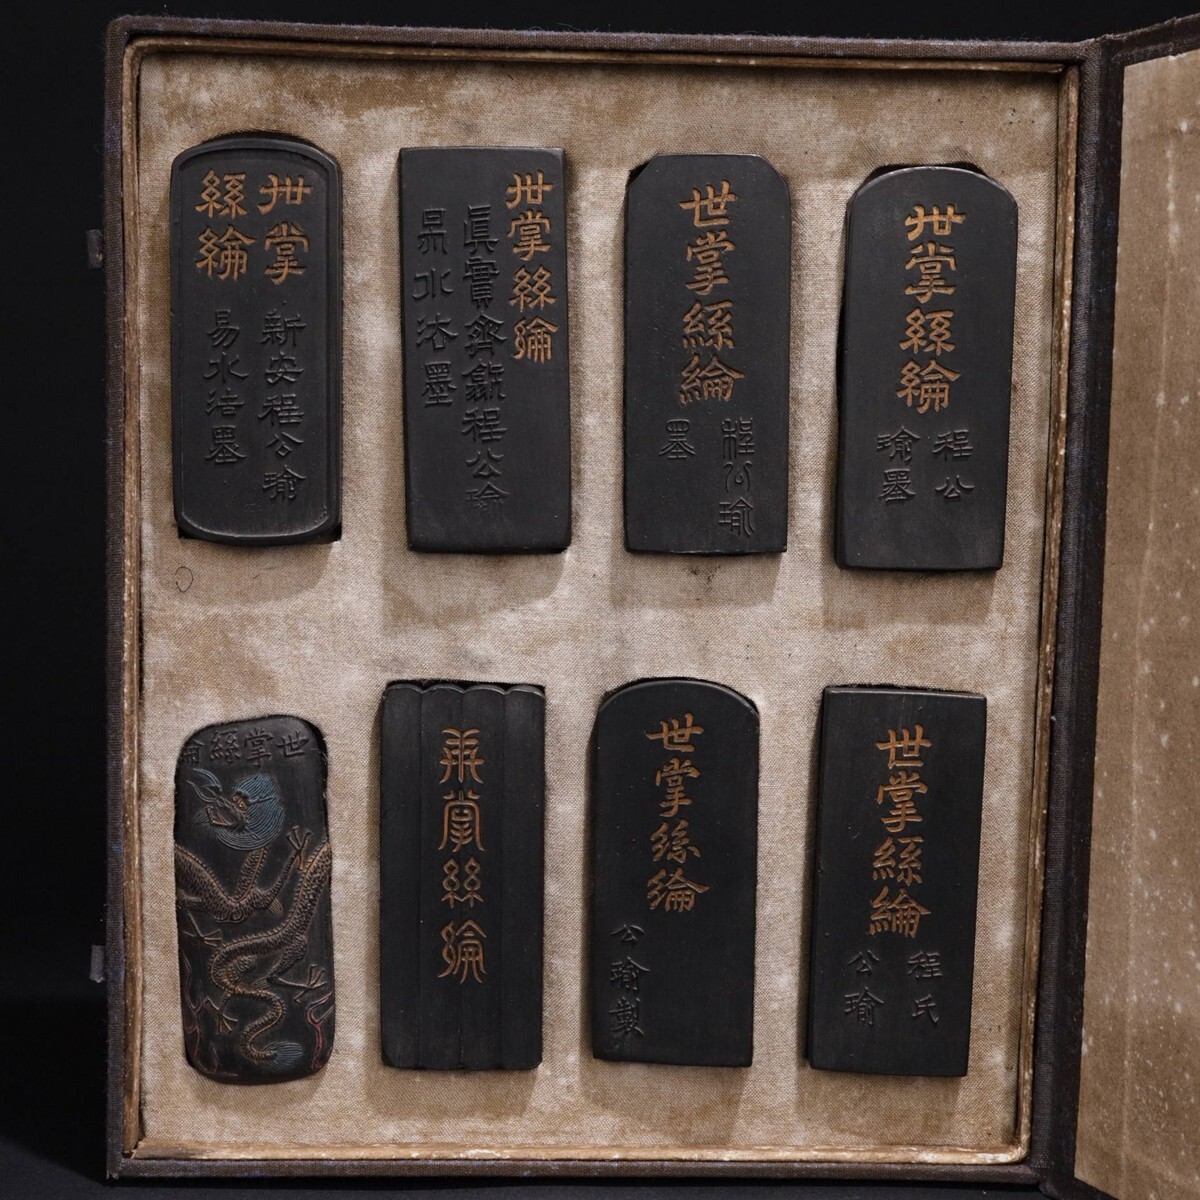 世掌
絲綸
新安程公瑜
易水法墨
世掌絲綸
真實齋鑑程公瑜
易水法墨
世掌絲綸
程公瑜
墨
世掌絲綸
程公
瑜墨
世掌絲綸
世掌絲綸
世掌絲綸
公瑜製
世掌絲綸
程氏
公瑜